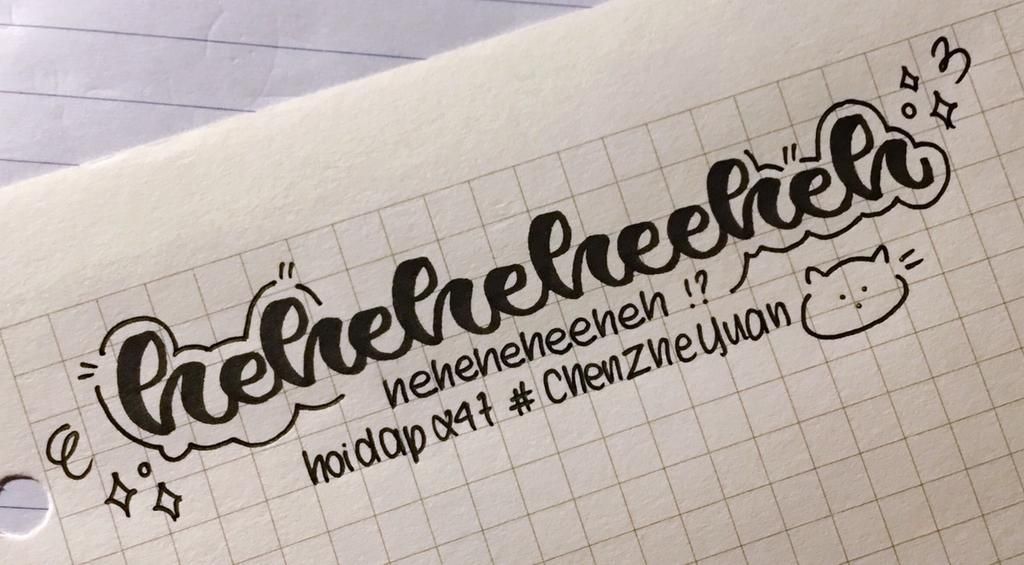 heheheheeheh
heheheheeheh !?
hoidap α47 # ChenZheYuan